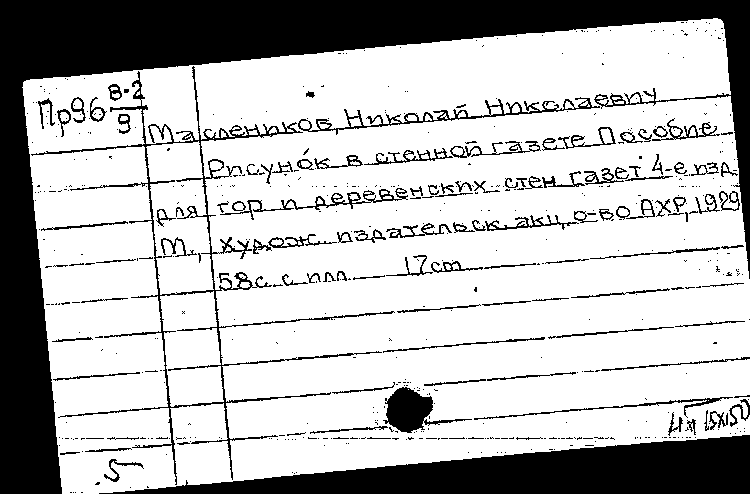 Пр96 В-2/9
Маслеников, Николай Николаевич
Рисунок в стенной газете Пособие
для гор и деревенских стен газет 4-е изд.
М., Худож. издательск. акц. о-во АХР, 1929
58с. с илл. 17cm
5